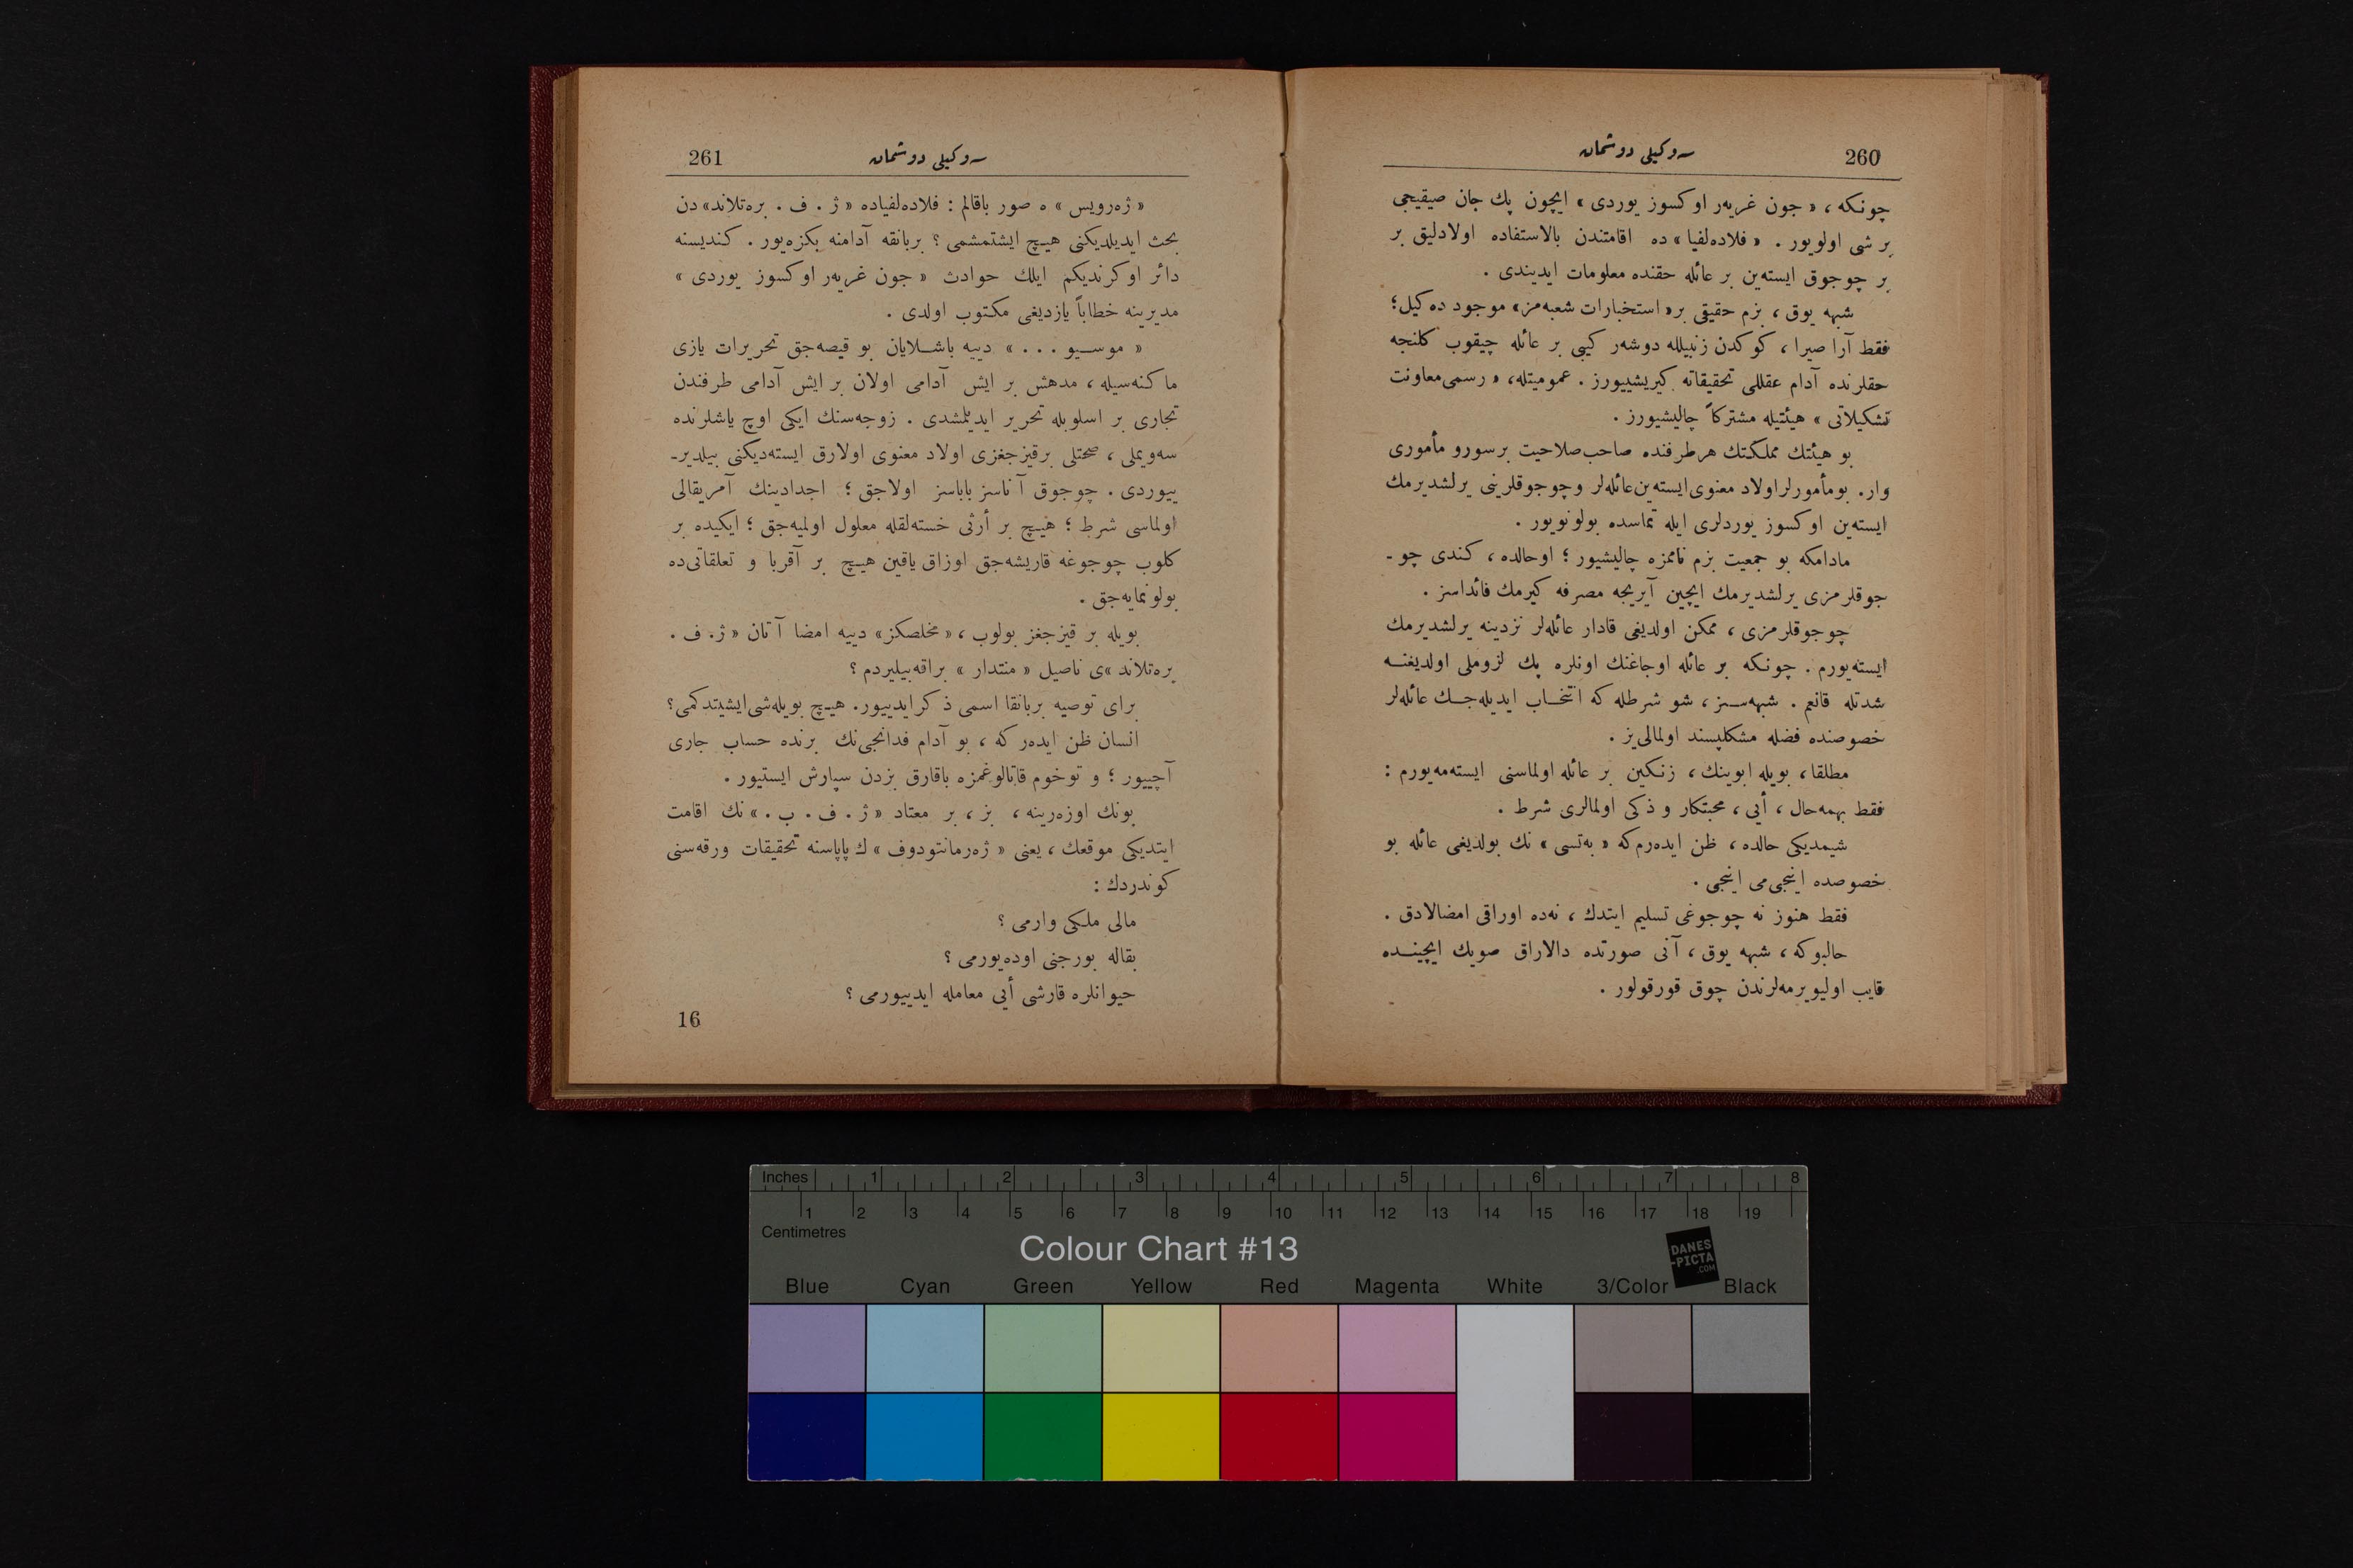 260
سوكیلی دوشمان
چونكه ، « جون غریه‌ر اوكسوز یوردی » ایچون پك جان صیقیجی
بر شی اولویور . « فلاده‌لفیا » ده اقامتندن بالاستفاده اولادلیق بر
بر چوجوق ایسته‌ین بر عائله حقنده معلومات ایدیندی .
شبهه یوق ، بزم حقیقی بر « استخبارات شعبه‌مز » موجود ده كیل ؛
فقط آرا صیرا ، كوكدن زنبیلله دوشه‌ر كیبی بر عائله چیقوب كلنجه
حقلرنده آدام عقللی تحقیقاته كیریشییورز . عمومیتله ، « رسمی معاونت
تشكیلاتی » هیئتیله مشتركاً چالیشیورز .
بو هیئتك مملكتك هر طرفنده صاحب صلاحیت برسورو مأموری
وار. بومأمورلر اولاد معنوی ایسته‌ین عائله‌لر و چوجوقلرینی یرلشدیرمك
ایسته‌ین اوكسوز یوردلری ایله تماسده بولونویور .
مادامكه بو جمعیت بزم نامزه چالیشیور ؛ اوحالده ، كندی چو -
جوقلرمزی یرلشدیرمك ایچین آیریجه مصرفه كیرمك فائداسز .
چوجوقلرمزی ، ممكن اولدیغی قادار عائله‌لر نزدینه یرلشدیرمك
ایسته‌یورم . چونكه بر عائله اوجاغنك اونلره پك لزوملی اولدیغنه
شدتله قانعم . شبهه‌سز ، شو شرطله كه انتخاب ایدیله‌جك عائله‌لر
خصوصنده فضله مشكلپسند اولمالی‌یز .
مطلقا ، بویله ابوینك ، زنكین بر عائله اولماسنی ایسته‌مه‌یورم :
فقط بهمه‌حال ، أیی ، محبتكار و ذكی اولمالری شرط .
شیمدیكی حالده ، ظن ایده‌رم كه « به‌تسی » نك بولدیغی عائله بو
خصوصده اینجی‌می اینجی .
فقط هنوز نه چوجوغی تسلیم ایتدك ، نه‌ده اوراقی امضالادق .
حالبوكه ، شبهه یوق ، آنی صورتده دالاراق صویك ایچینده
قایب اولیویرمه‌لرندن چوق قورقولور .
261
سوكیلی دوشمان
« ژه‌رویس » ه صور باقالم : فلاده‌لفیاده « ژ . ف . بره‌تلاند » دن
بحث ایدیلدیكنی هیچ ایشتمشمی ؟ بربانقه آدامنه بكزه‌یور . كندیسنه
دائر اوكرندیكم ایلك حوادث « جون غریه‌ر اوكسوز یوردی »
مدیرینه خطاباً یازدیغی مكتوب اولدی .
« موسیو . . . » دییه باشلایان بو قیصه‌جق تحریرات یازی
ماكنه‌سیله ، مدهش بر ایش آدامی اولان بر ایش آدامی طرفندن
تجاری بر اسلوبله تحریر ایدیلمشدی . زوجه‌سنك ایكی اوچ یاشلرنده
سه‌ویملی ، صحتلی برقیزجغزی اولاد معنوی اولارق ایسته‌دیكنی بیلدیر-
ییوردی . چوجوق آناسز باباسز اولاجق ؛ اجدادینك آمریقالی
اولماسی شرط ؛ هیچ بر أرثی خسته‌لقله معلول اولمیه‌جق ؛ ایكیده بر
كلوب چوجوغه قاریشه‌جق اوزاق یاقین هیچ بر آقربا و تعلقاتی‌ده
بولونمایه‌جق .
بویله بر قیزجغز بولوب ، « مخلصكز » دییه امضا آتان « ژ. ف .
بره‌تلاند »ی ناصیل « منتدار » براقه‌بیلیردم ؟
برای توصیه بربانقا اسمی ذكر ایدییور. هیچ بویله‌شی ایشیتدكمی؟
انسان ظن ایده‌ر كه ، بو آدام فدانجی‌نك برنده حساب جاری
آچییور ؛ و توخوم قاتالوغمزه باقارق بزدن سپارش ایستیور .
بونك اوزه‌رینه ، بز ، بر معتاد « ژ . ف . ب . » نك اقامت
ایتدیكی موقعك ، یعنی « ژه‌رمانتودوف » ك پاپاسنه تحقیقات ورقه‌سنی
كوندردك :
مالی ملكی وارمی ؟
بقاله بورجنی اوده‌یورمی ؟
حیوانلره قارشی أیی معامله ایدییورمی ؟
16
Inches 1 2 3 4 5 6 7 8
1 2 3 4 5 6 7 8 9 10 11 12 13 14 15 16 17 18 19
Centimetres
Colour Chart #13
DANES
-PICTA
.COM
Blue Cyan Green Yellow Red Magenta White 3/Color Black